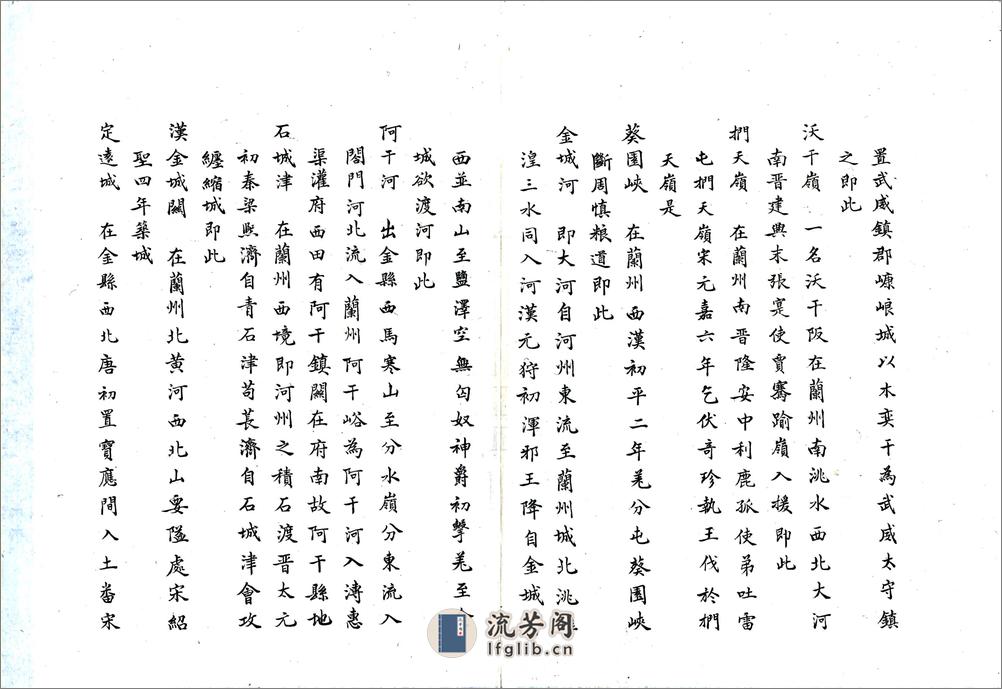 置武威鎮郡嵻崀城以木奕干為武威太守鎮
之即此
沃干嶺 一名沃干阪在蘭州南洮水西北大河
南晉建興末張寔使賈騫踰嶺入援即此
捫天嶺 在蘭州南晉隆安中利鹿孤使弟吐雷
屯捫天嶺宋元嘉六年乞伏奇珍執王伐於捫
天嶺是
葵園峽 在蘭州西漢初平二年羌分屯葵園峽
斷周慎粮道即此
金城河 即大河自河州東流至蘭州城北洮
湟三水同入河漢元狩初渾邪王降自金城
西並南山至鹽澤空無匈奴神爵初擊羌至金
城欲渡河即此
阿干河 出金縣西馬寒山至分水嶺分東流入
閤門河北流入蘭州阿干峪為阿干河入溥惠
渠灌府西田有阿干鎮關在府南故阿干縣地
石城津 在蘭州西境即河州之積石渡晉太元
初秦梁熙濟自青石津苟萇濟自石城津會攻
纏縮城即此
漢金城關 在蘭州北黄河西北山要隘處宋紹
聖四年築城
定遠城 在金縣西北唐初置寶應間入土畨宋
流芳阁
lfglib.cn